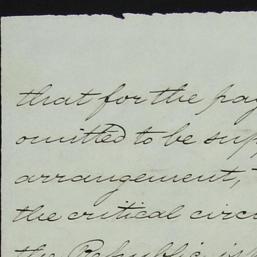 that for the pay
omitted to be sup
arrangement,
the critical circu
the Republic is